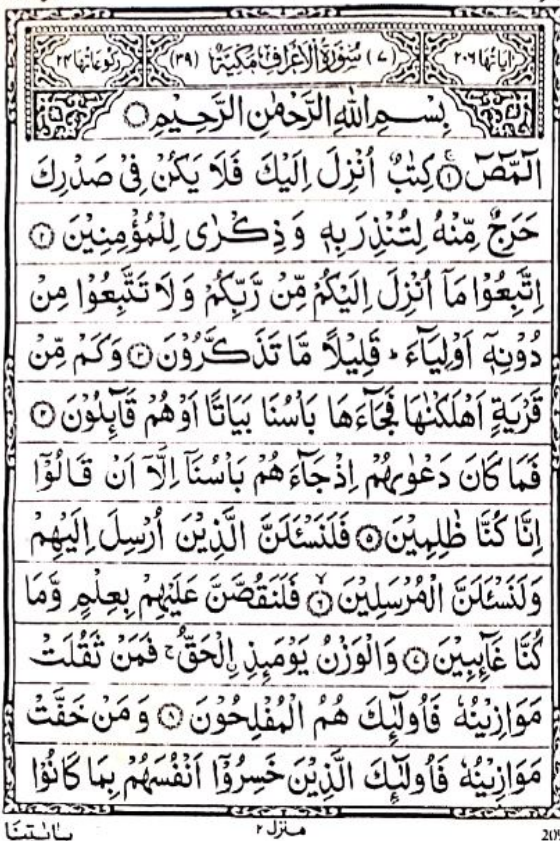 اٰيَاتُهَا ۲۰۶ (۷) سُوۡرَةُ الۡاَعۡرَافِ مَكِّيَّةٌ (۳۹) رُكُوۡعَاتُهَا ۲۴
بِسۡمِ اللّٰهِ الرَّحۡمٰنِ الرَّحِيۡمِ
الٓمّٓصٓ ۱ كِتٰبٌ اُنۡزِلَ اِلَيۡكَ فَلَا يَكُنۡ فِىۡ صَدۡرِكَ
حَرَجٌ مِّنۡهُ لِتُنۡذِرَ بِهٖ وَذِكۡرٰى لِلۡمُؤۡمِنِيۡنَ ۲
اِتَّبِعُوۡا مَاۤ اُنۡزِلَ اِلَيۡكُمۡ مِّنۡ رَّبِّكُمۡ وَلَا تَتَّبِعُوۡا مِنۡ
دُوۡنِهٖۤ اَوۡلِيَآءَ ؕ قَلِيۡلًا مَّا تَذَكَّرُوۡنَ ۳ وَكَمۡ مِّنۡ
قَرۡيَةٍ اَهۡلَكۡنٰهَا فَجَآءَهَا بَاۡسُنَا بَيَاتًا اَوۡ هُمۡ قَآئِلُوۡنَ ۴
فَمَا كَانَ دَعۡوٰىهُمۡ اِذۡ جَآءَهُمۡ بَاۡسُنَاۤ اِلَّاۤ اَنۡ قَالُوۡۤا
اِنَّا كُنَّا ظٰلِمِيۡنَ ۵ فَلَنَسۡئَلَنَّ الَّذِيۡنَ اُرۡسِلَ اِلَيۡهِمۡ
وَلَنَسۡئَلَنَّ الۡمُرۡسَلِيۡنَ ۶ فَلَنَقُصَّنَّ عَلَيۡهِمۡ بِعِلۡمٍ وَّمَا
كُنَّا غَآئِبِيۡنَ ۷ وَالۡوَزۡنُ يَوۡمَئِذِ ۨالۡحَقُّ ۚ فَمَنۡ ثَقُلَتۡ
مَوَازِيۡنُهٗ فَاُولٰٓئِكَ هُمُ الۡمُفۡلِحُوۡنَ ۸ وَمَنۡ خَفَّتۡ
مَوَازِيۡنُهٗ فَاُولٰٓئِكَ الَّذِيۡنَ خَسِرُوۡۤا اَنۡفُسَهُمۡ بِمَا كَانُوۡا
بِاٰيٰتِنَا
منزل ۲
209